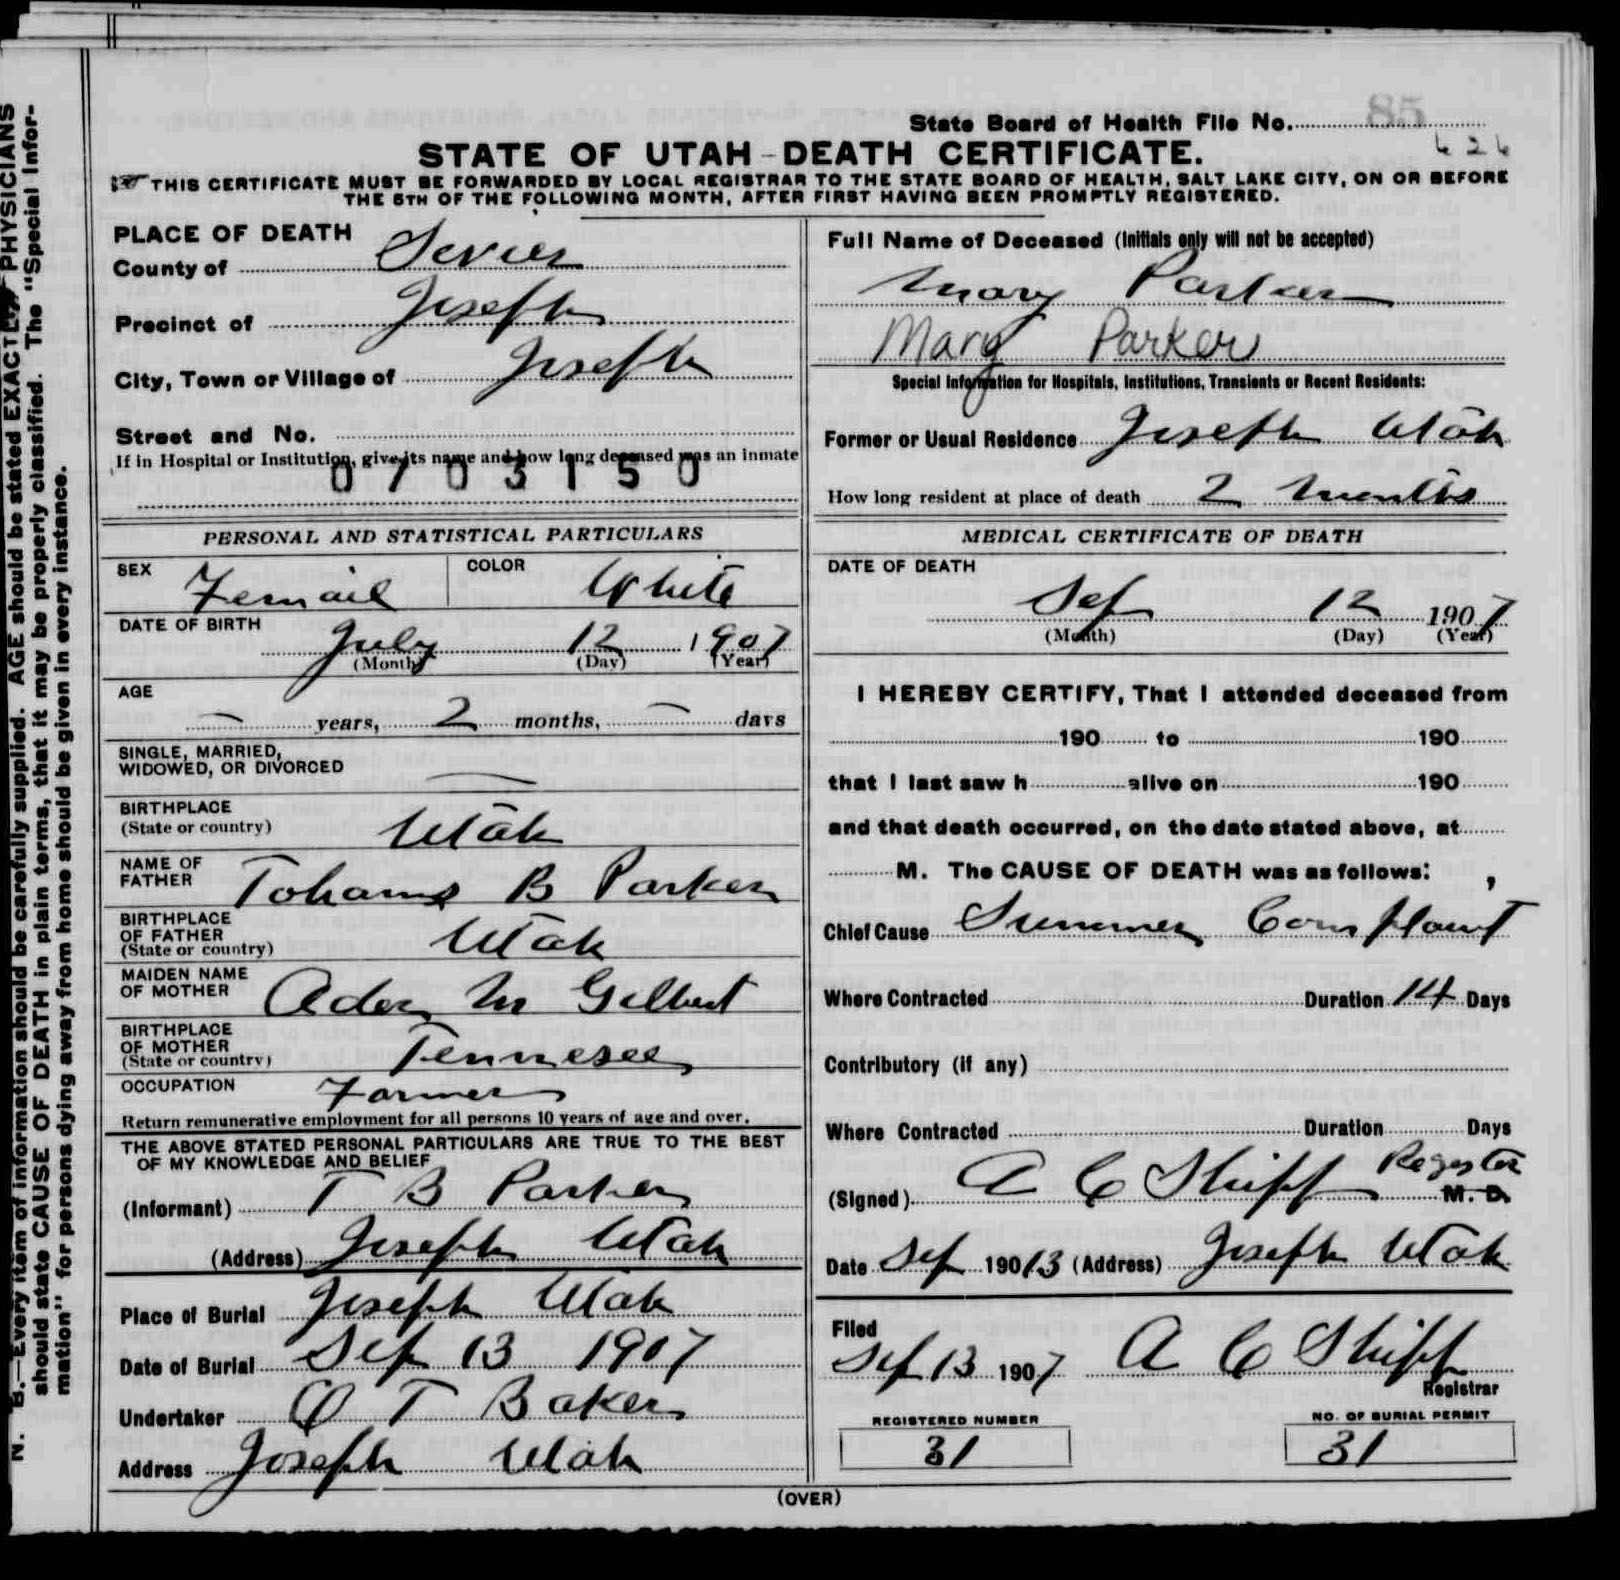 85
State Board of Health File No.
626
STATE OF UTAH-DEATH CERTIFICATE.
THIS CERTIFICATE MUST BE FORWARDED BY LOCAL REGISTRAR TO THE STATE BOARD OF HEALTH, SALT LAKE CITY, ON OR BEFORE
THE 5TH OF THE FOLLOWING MONTH, AFTER FIRST HAVING BEEN PROMPTLY REGISTERED.
PLACE OF DEATH
County of Sevier
Precinct of Joseph
City, Town or Village of Joseph
Street and No.
If in Hospital or Institution, give its name and how long deceased was an inmate
0703150
Full Name of Deceased (Initials only will not be accepted)
Mary Parker
Mary Parker
Special Information for Hospitals, Institutions, Transients or Recent Residents:
Former or Usual Residence Joseph Utah
How long resident at place of death 2 months
PERSONAL AND STATISTICAL PARTICULARS
SEX Femail COLOR White
DATE OF BIRTH
July 12 1907
(Month) (Day) (Year)
AGE
— years, 2 months, — days
SINGLE, MARRIED,
WIDOWED, OR DIVORCED —
BIRTHPLACE
(State or country) Utah
NAME OF
FATHER Tohams B Parker
BIRTHPLACE
OF FATHER
(State or country) Utah
MAIDEN NAME
OF MOTHER Ader M Gilbert
BIRTHPLACE
OF MOTHER
(State or country) Tennesee
OCCUPATION Farmer
Return remunerative employment for all persons 10 years of age and over.
THE ABOVE STATED PERSONAL PARTICULARS ARE TRUE TO THE BEST
OF MY KNOWLEDGE AND BELIEF
(Informant) T B Parker
(Address) Joseph Utah
Place of Burial Joseph Utah
Date of Burial Sep 13 1907
Undertaker O T Baker
Address Joseph Utah
MEDICAL CERTIFICATE OF DEATH
DATE OF DEATH
Sep 12 1907
(Month) (Day) (Year)
I HEREBY CERTIFY, That I attended deceased from
190 to 190
that I last saw h alive on 190
and that death occurred, on the date stated above, at
M. The CAUSE OF DEATH was as follows:
Chief Cause Summer Complaint
Where Contracted Duration 14 Days
Contributory (if any)
Where Contracted Duration Days
(Signed) A C Shipp Regester M. D.
Date Sep 190 13 (Address) Joseph Utah
Filed
Sep 13 1907 A C Shipp
Registrar
REGISTERED NUMBER
31
NO. OF BURIAL PERMIT
31
(OVER)
N. B.—Every item of information should be carefully supplied. AGE should be stated EXACTLY. PHYSICIANS
should state CAUSE OF DEATH in plain terms, that it may be properly classified. The "Special Infor-
mation" for persons dying away from home should be given in every instance.